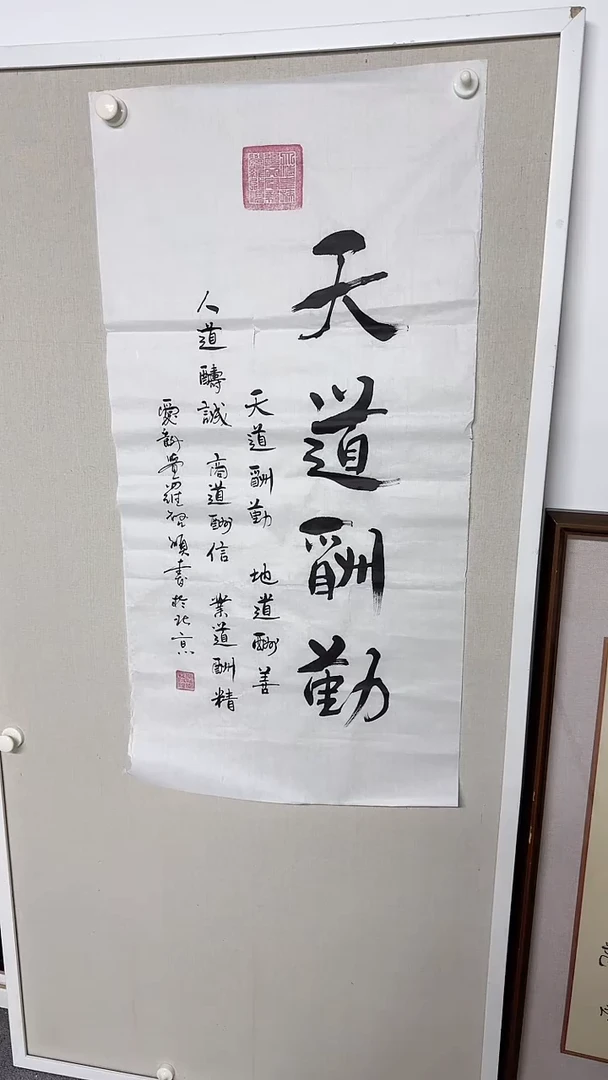 天道酬勤
天道酬勤 地道酬善
人道醻誠 商道酬信 業道酬精
愛新覺羅 啟順書於北京